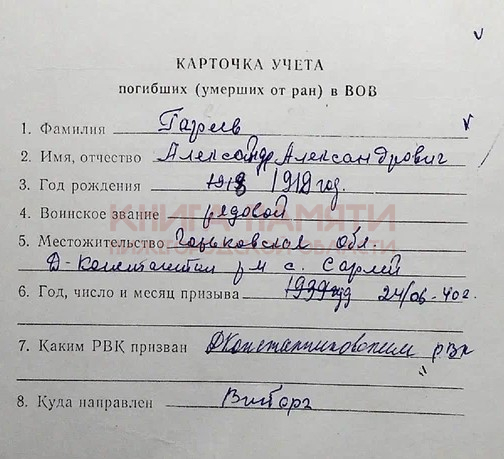 КАРТОЧКА УЧЕТА
погибших (умерших от ран) в ВОВ
1. Фамилия Гареев
2. Имя, отчество Александр Александрович
3. Год рождения 1918 1919 год.
4. Воинское звание рядовой
КНИГА ПАМЯТИ
НИЖЕГОРОДСКОЙ ОБЛАСТИ
5. Местожительство Горьковская обл.
Д-Константин р-н с. Сарлей
6. Год, число и месяц призыва 1939 24/06-40г.
7. Каким РВК призван ДКонстантиновским рвк
8. Куда направлен Виборг